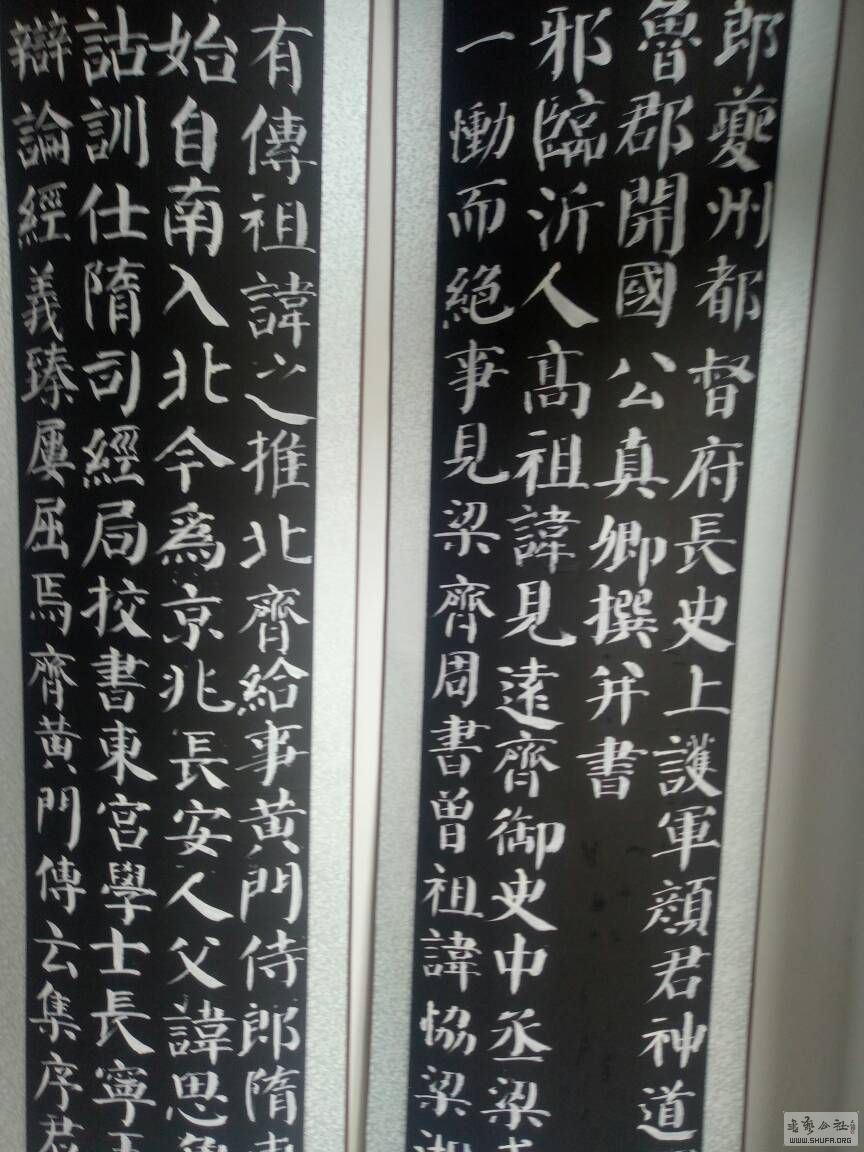 郎夔州都督府長史上護軍顔君神道
魯郡開國公真卿撰并書
邪臨沂人高祖諱見遠齊御史中丞梁
一慟而絕事見梁齊周書曾祖諱協梁湘
有傳祖諱之推北齊給事黄門侍郎隋東
始自南入北今為京兆長安人父諱思魯
詁訓仕隋司經局挍書東宮學士長寧王
辯論經義臻屢屈焉齊黄門傳云集序君
WWW.SHUFA.ORG